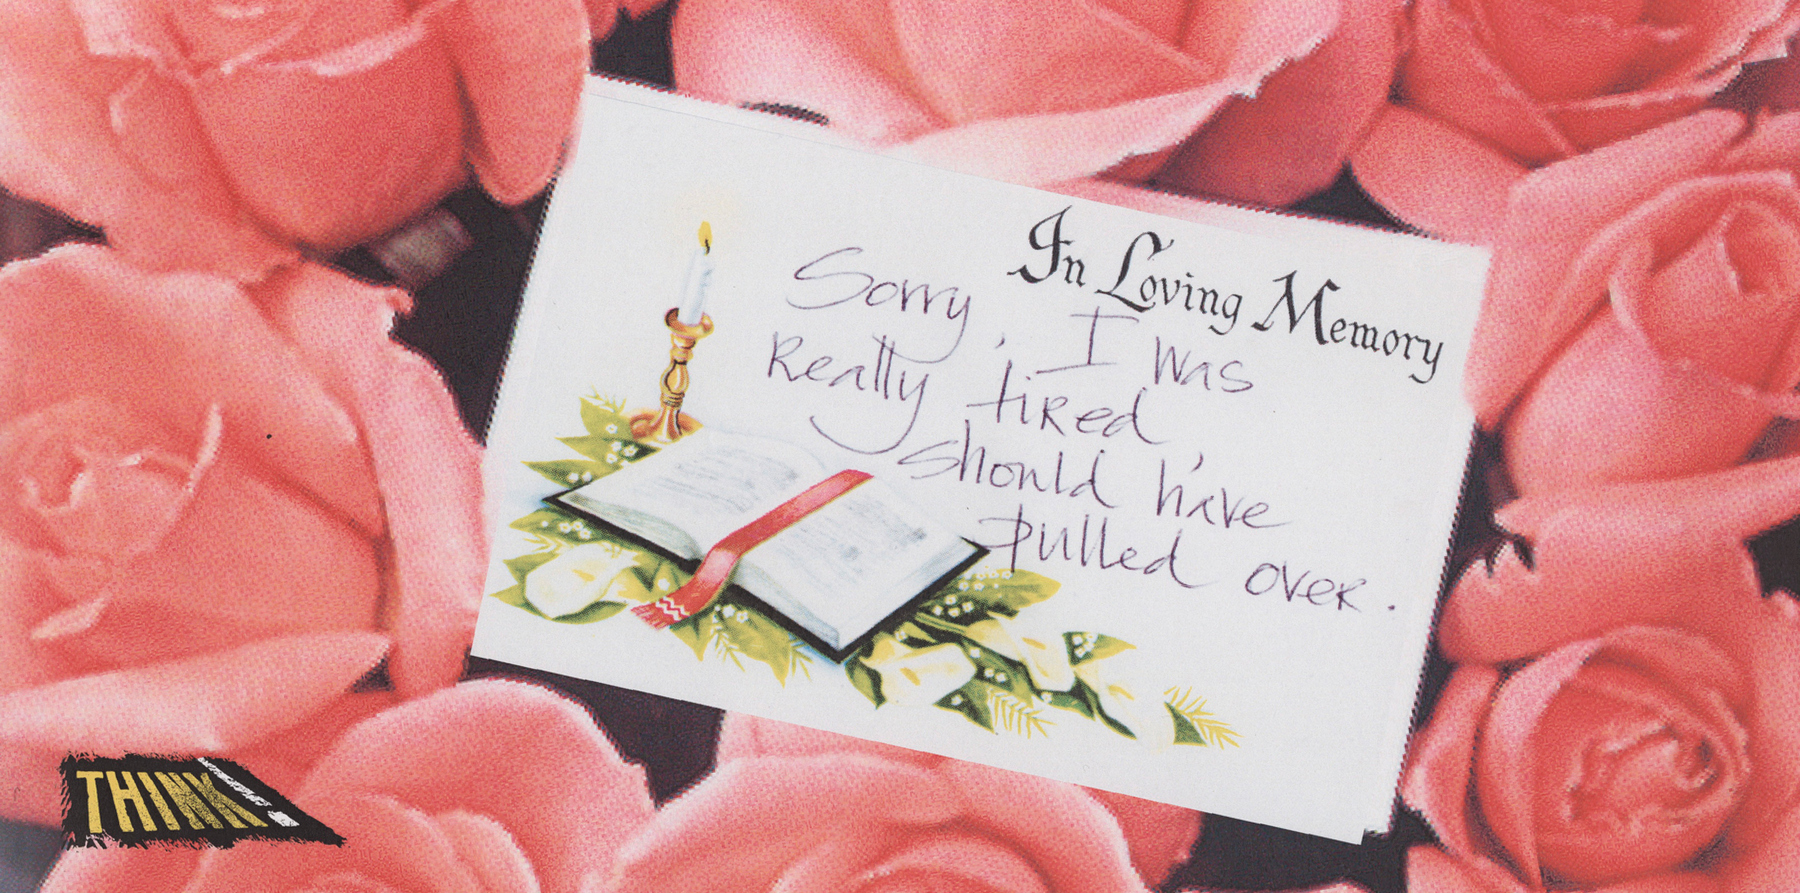 In Loving Memory
Sorry, I was
Really tired
should have
pulled over.
THINK!